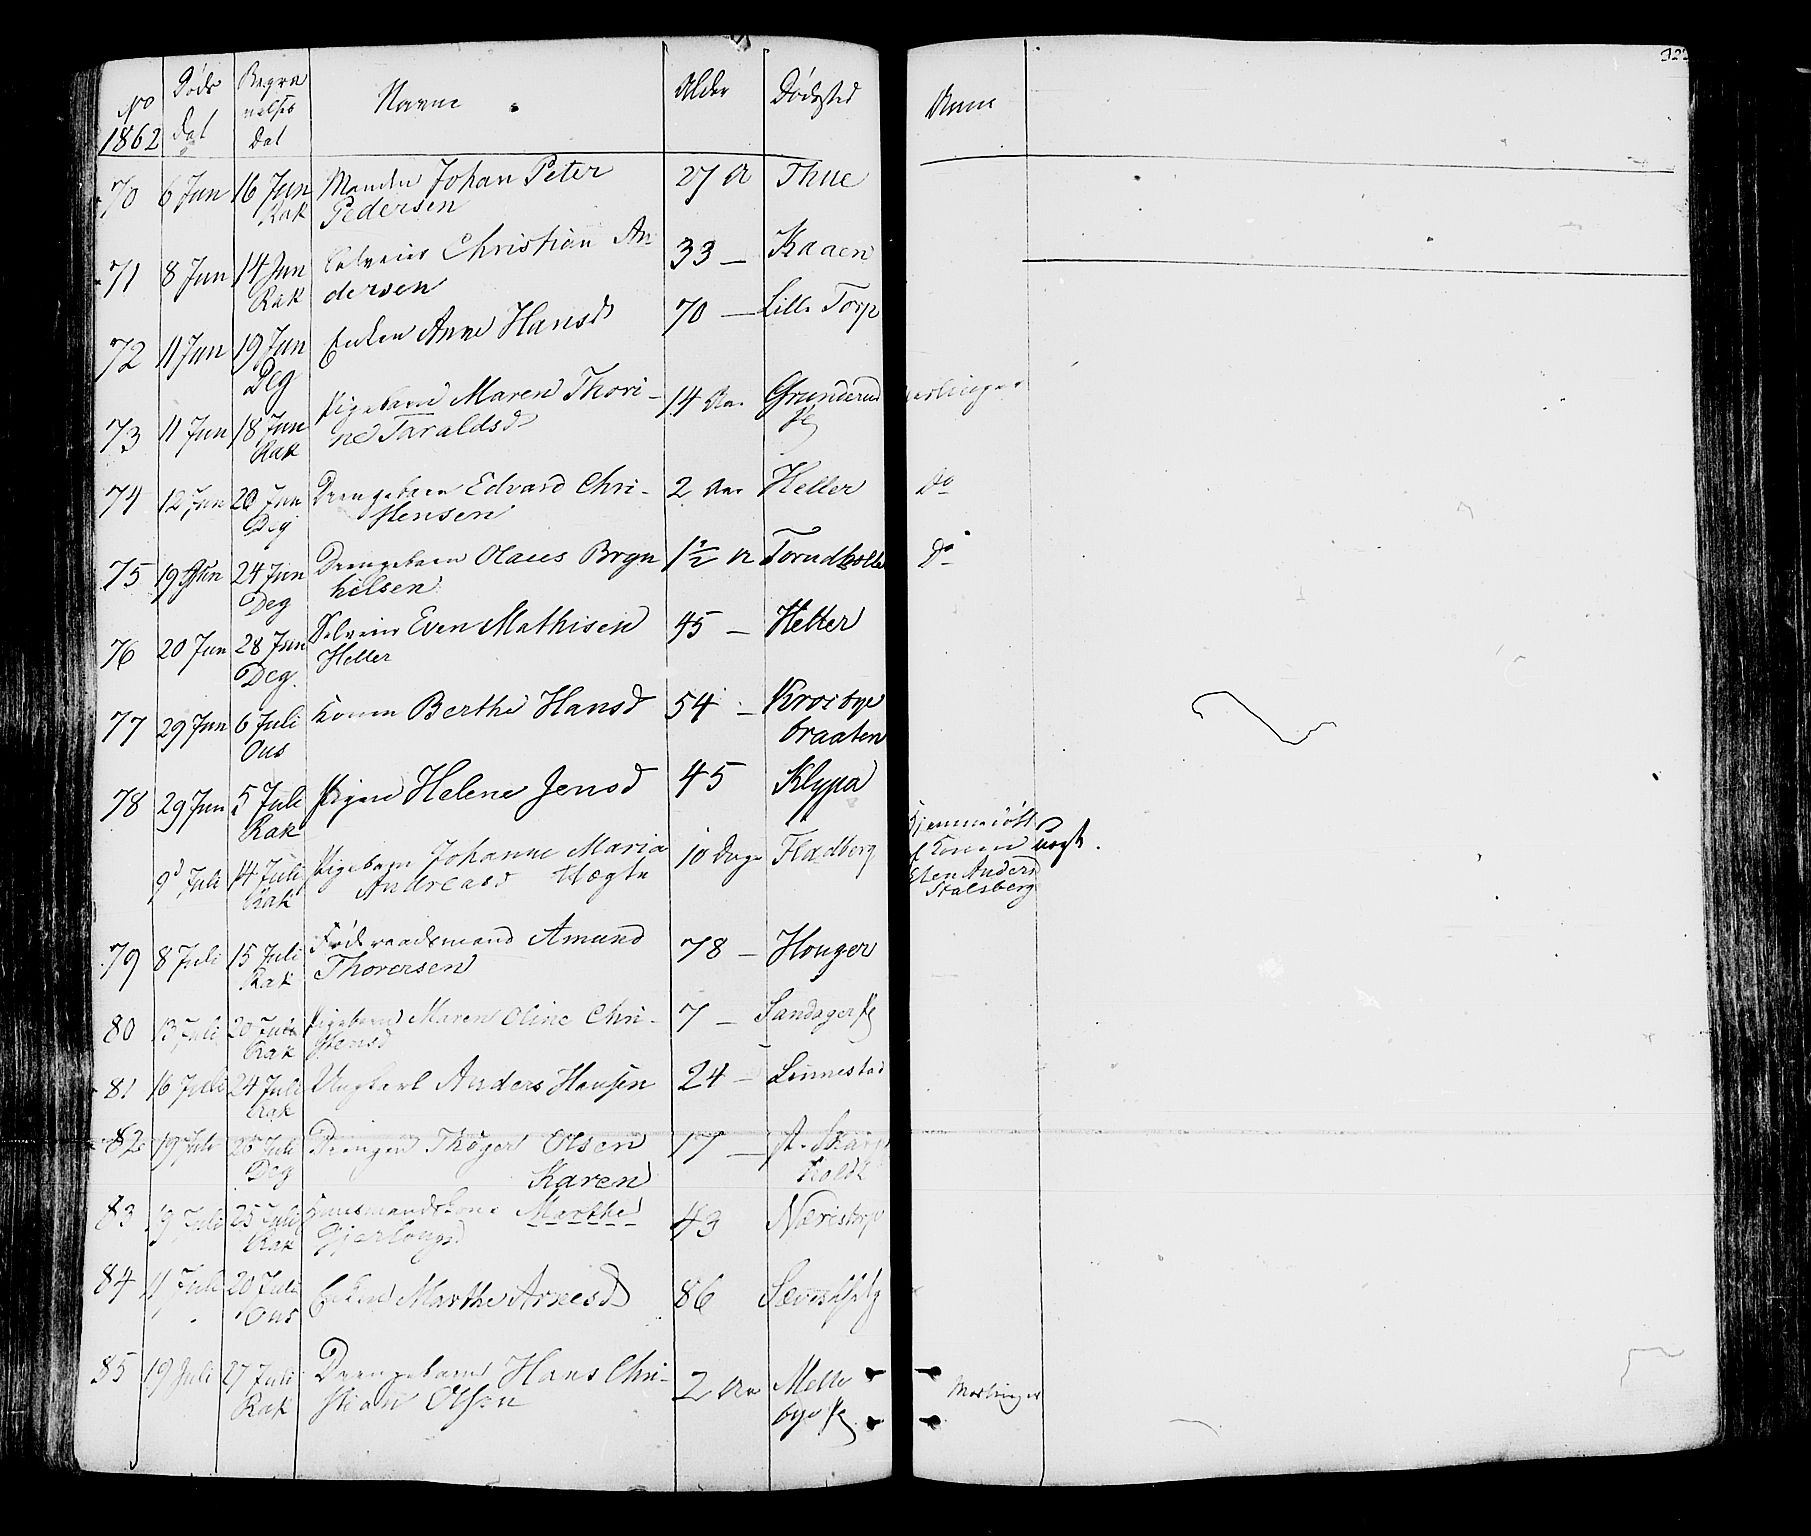 No 1862 Døds Dat Begravelses Dat Navne Alder Dødsted Anm 322
70 6 Jun 16 Jun Manden Johan Peter 27 A Thue
Rak Pedersen
71 8 Jun 14 Jun Christian An- 33 — Kaaen
Rak dersen
72 11 Jun 19 Jun Enken Anne Hansd 70 — Lille Torp
Deg
73 11 Jun 18 Jun Pigebarn Maren Thori- 14 Aar Grunderud
Rak ne Taraldsd
74 12 Jun 20 Jun Drengebarn Edvard Chri- 2 Aar Heller Do
Deg stensen
75 19 Jun 24 Jun Drengebarn Olaus Bryn 1½ A Torud Do
Deg hilsen
76 20 Jun 28 Jun Selveier Even Mathisen 45 — Heller
Deg. Heller
77 29 Jun 6 Juli Konen Berthe Hansd 54 — Krosbye
Ous braaten
78 29 Jun 5 Juli Pigen Helene Jensd 45 Klypa
Rak
9d Juli 14 Juli Pigebarn Johanne Maria 10 Dage Fladberg Hjemmedøbt af Konen
Rak Andreasd Hægte Elen Andersd Stalsberg
79 8 Juli 15 Juli Føderaadsmand Amund 78 — Houger
Rak Thoresen
80 13 Juli 20 Juli Pigebarn Maren Oline Chri- 7 — Sandager
Rak stensd
81 16 Juli 24 Juli Ungkarl Anders Hansen 24 — Linnestad
Rak
82 19 Juli 25 Juli Drengen Thøger Olsen 17 —
Deg Karen
83 19 Juli 25 Juli Huusmandskone Marthe 43 Næristorp
Rak
84 11 Juli 20 Juli Enken Marthe Arnesd 86
Ous
85 19 Juli 27 Juli Drengebarn Hans Chri- 2 Aar Melle
Rak stian Olsen bye Mæslinger